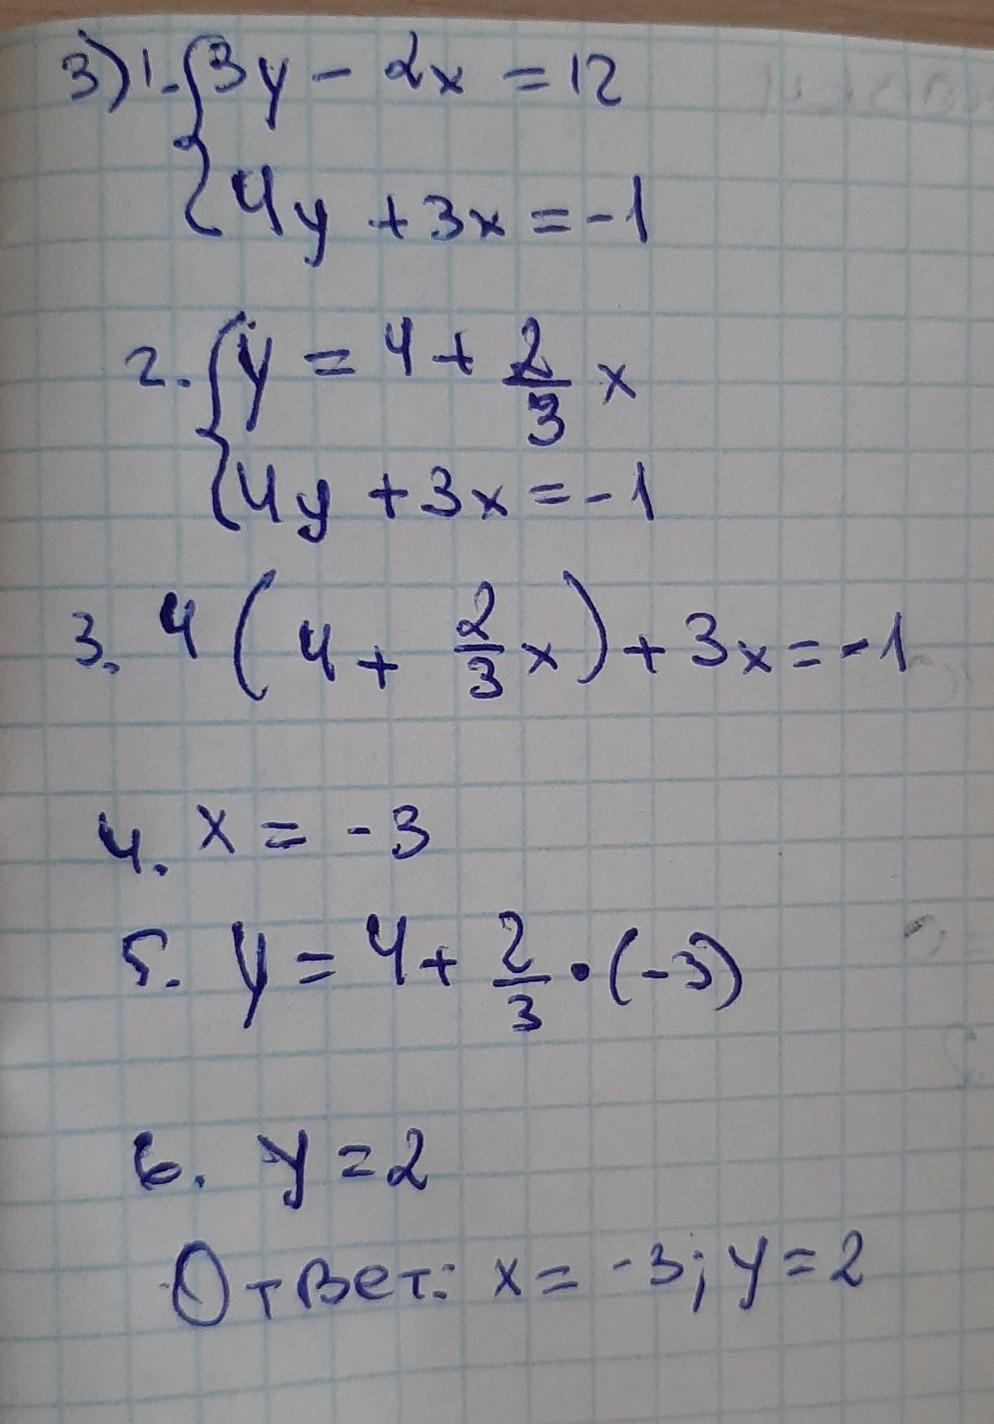 3) 1. { 3y - 2x = 12
4y + 3x = -1
2. { y = 4 + 2/3 x
4y + 3x = -1
3. 4 ( 4 + 2/3 x ) + 3x = -1
4. x = -3
5. y = 4 + 2/3 • (-3)
6. y = 2
Ответ: x = -3; y = 2